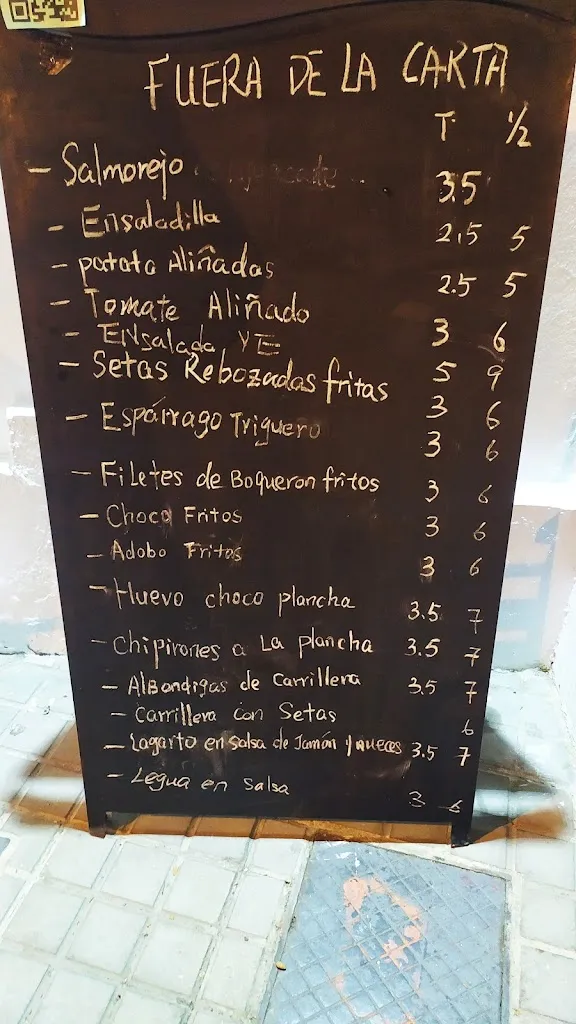 FUERA DE LA CARTA
T 1/2
- Salmorejo 3.5
- Ensaladilla 2.5 5
- patata Aliñadas 2.5 5
- Tomate Aliñado 3 6
- ENsalada YE 5 9
- Setas Rebozadas fritas 3 6
- Espárrago Triguero 3 6
- Filetes de Boqueron fritos 3 6
- Choco Fritos 3 6
- Adobo Fritos 3 6
- Huevo choco plancha 3.5 7
- Chipirones a La plancha 3.5 7
- Albondigas de Carrillera 3.5 7
- Carrillera con Setas 6
- Lagarto en salsa de Jamón y nueces 3.5 7
- Legua en Salsa 3 6